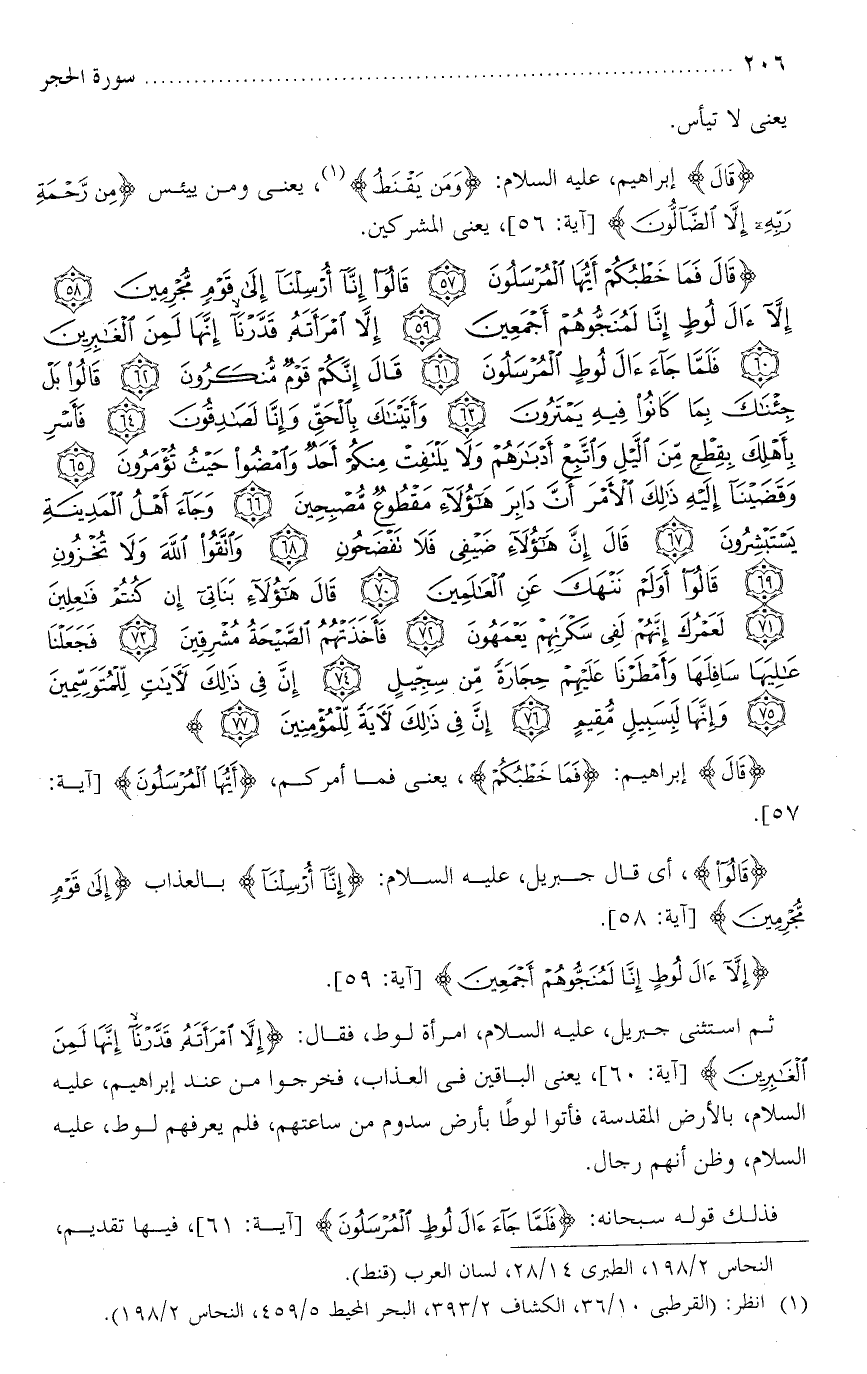 ٢٠٦ ........................................................................ سورة الحجر
يعنى لا تيأس.
﴿قَالَ﴾ إبراهيم، عليه السلام: ﴿وَمَن يَقْنَطُ﴾(١)، يعنـى ومـن ييئس ﴿مِن رَّحْمَةِ
رَبِّهِۦٓ إِلَّا ٱلضَّآلُّونَ﴾ [آية: ٥٦]، يعنى المشركين.
﴿قَالَ فَمَا خَطْبُكُمْ أَيُّهَا ٱلْمُرْسَلُونَ ٥٧ قَالُوٓا۟ إِنَّآ أُرْسِلْنَآ إِلَىٰ قَوْمٍ مُّجْرِمِينَ ٥٨
إِلَّآ ءَالَ لُوطٍ إِنَّا لَمُنَجُّوهُمْ أَجْمَعِينَ ٥٩ إِلَّا ٱمْرَأَتَهُۥ قَدَّرْنَآ إِنَّهَا لَمِنَ ٱلْغَـٰبِرِينَ
٦٠ فَلَمَّا جَآءَ ءَالَ لُوطٍ ٱلْمُرْسَلُونَ ٦١ قَالَ إِنَّكُمْ قَوْمٌ مُّنكَرُونَ ٦٢ قَالُوا۟ بَلْ
جِئْنَـٰكَ بِمَا كَانُوا۟ فِيهِ يَمْتَرُونَ ٦٣ وَأَتَيْنَـٰكَ بِٱلْحَقِّ وَإِنَّا لَصَـٰدِقُونَ ٦٤ فَأَسْرِ
بِأَهْلِكَ بِقِطْعٍ مِّنَ ٱلَّيْلِ وَٱتَّبِعْ أَدْبَـٰرَهُمْ وَلَا يَلْتَفِتْ مِنكُمْ أَحَدٌ وَٱمْضُوا۟ حَيْثُ تُؤْمَرُونَ ٦٥
وَقَضَيْنَآ إِلَيْهِ ذَٰلِكَ ٱلْأَمْرَ أَنَّ دَابِرَ هَـٰٓؤُلَآءِ مَقْطُوعٌ مُّصْبِحِينَ ٦٦ وَجَآءَ أَهْلُ ٱلْمَدِينَةِ
يَسْتَبْشِرُونَ ٦٧ قَالَ إِنَّ هَـٰٓؤُلَآءِ ضَيْفِى فَلَا تَفْضَحُونِ ٦٨ وَٱتَّقُوا۟ ٱللَّهَ وَلَا تُخْزُونِ
٦٩ قَالُوٓا۟ أَوَلَمْ نَنْهَكَ عَنِ ٱلْعَـٰلَمِينَ ٧٠ قَالَ هَـٰٓؤُلَآءِ بَنَاتِىٓ إِن كُنتُمْ فَـٰعِلِينَ
٧١ لَعَمْرُكَ إِنَّهُمْ لَفِى سَكْرَتِهِمْ يَعْمَهُونَ ٧٢ فَأَخَذَتْهُمُ ٱلصَّيْحَةُ مُشْرِقِينَ ٧٣ فَجَعَلْنَا
عَـٰلِيَهَا سَافِلَهَا وَأَمْطَرْنَا عَلَيْهِمْ حِجَارَةً مِّن سِجِّيلٍ ٧٤ إِنَّ فِى ذَٰلِكَ لَـَٔايَـٰتٍ لِّلْمُتَوَسِّمِينَ
٧٥ وَإِنَّهَا لَبِسَبِيلٍ مُّقِيمٍ ٧٦ إِنَّ فِى ذَٰلِكَ لَـَٔايَةً لِّلْمُؤْمِنِينَ ٧٧﴾
﴿قَالَ﴾ إبراهيم: ﴿فَمَا خَطْبُكُمْ﴾، يعنـى فمـا أمركـم، ﴿أَيُّهَا ٱلْمُرْسَلُونَ﴾ [آيـة:
٥٧].
﴿قَالُوٓا۟﴾، أى قال جبـريل، عليـه السـلام: ﴿إِنَّآ أُرْسِلْنَآ﴾ بـالعذاب ﴿إِلَىٰ قَوْمٍ
مُّجْرِمِينَ﴾ [آية: ٥٨].
﴿إِلَّآ ءَالَ لُوطٍ إِنَّا لَمُنَجُّوهُمْ أَجْمَعِينَ﴾ [آية: ٥٩].
ثـم استثنى جبـريل، عليه السلام، امـرأة لـوط، فقـال: ﴿إِلَّا ٱمْرَأَتَهُۥ قَدَّرْنَآ إِنَّهَا لَمِنَ
ٱلْغَـٰبِرِينَ﴾ [آية: ٦٠]، يعنى البـاقين فـى العـذاب، فخرجـوا مـن عنـد إبراهيـم، عليـه
السلام، بالأرض المقدسة، فأتوا لوطًا بأرض سدوم من ساعتهم، فلم يعرفهم لـوط، عليـه
السلام، وظن أنهم رجال.
فذلـك قولـه سـبحانه: ﴿فَلَمَّا جَآءَ ءَالَ لُوطٍ ٱلْمُرْسَلُونَ﴾ [آيـة: ٦١]، فيـها تقديـم،
النحاس ١٩٨/٢، الطبرى ٢٨/١٤، لسان العرب (قنط).
(١) انظر: (القرطبى ٣٦/١٠، الكشاف ٣٩٣/٢، البحر المحيط ٤٥٩/٥، النحاس ١٩٨/٢).